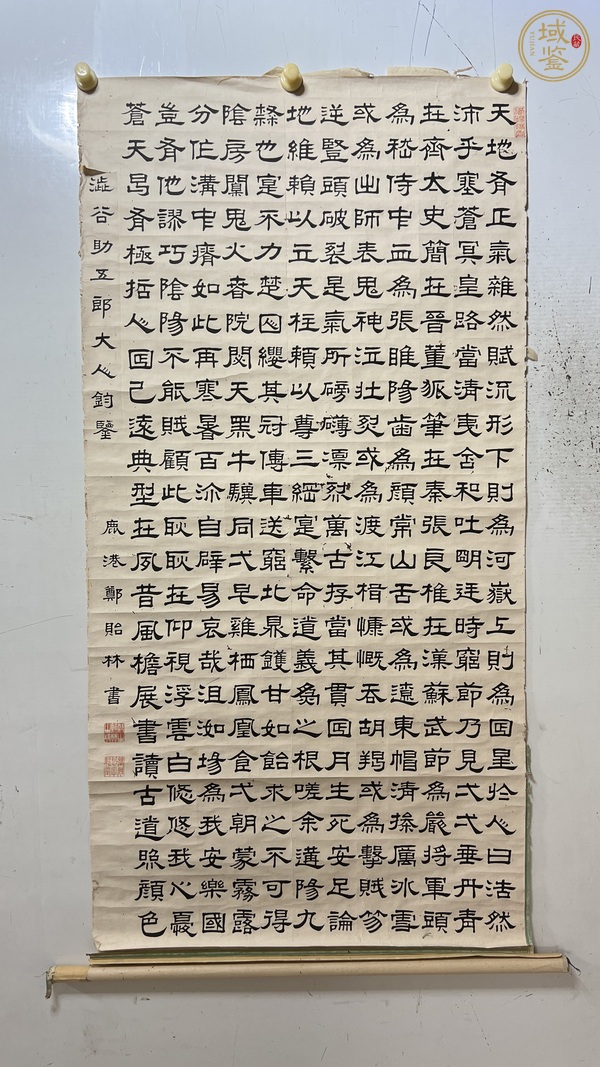 天地有正氣雜然賦流形下則為河嶽上則為日星於人曰浩然
沛乎塞蒼冥皇路當清夷含和吐明廷時窮節乃見弌弌垂丹青
在齊太史簡在晉董狐筆在秦張良椎在漢蘇武節為嚴將軍頭
為嵇侍中血為張睢陽齒為顏常山舌或為遼東帽清操厲冰雪
或為出師表鬼神泣壯烈或為渡江楫慷慨吞胡羯或為擊賊笏
逆豎頭破裂是氣所磅礴凜烈萬古存當其貫日月生死安足論
地維賴以立天柱賴以尊三綱寔繫命道義為之根嗟余遘陽九
隸也寔不力楚囚纓其冠傳車送窮北鼎鑊甘如飴求之不可得
陰房闃鬼火春院閟天黑牛驥同弌皁雞栖鳳凰食弌朝蒙霧露
分作溝中瘠如此再寒暑百沴自辟易哀哉沮洳場為我安樂國
豈有他謬巧陰陽不能賊顧此耿耿在仰視浮雲白悠悠我心憂
蒼天曷有極哲人日已遠典型在夙昔風檐展書讀古道照顏色
澁谷助五郎大人鈞鑒
鹿港鄭貽林書
域鉴
YUJIAN